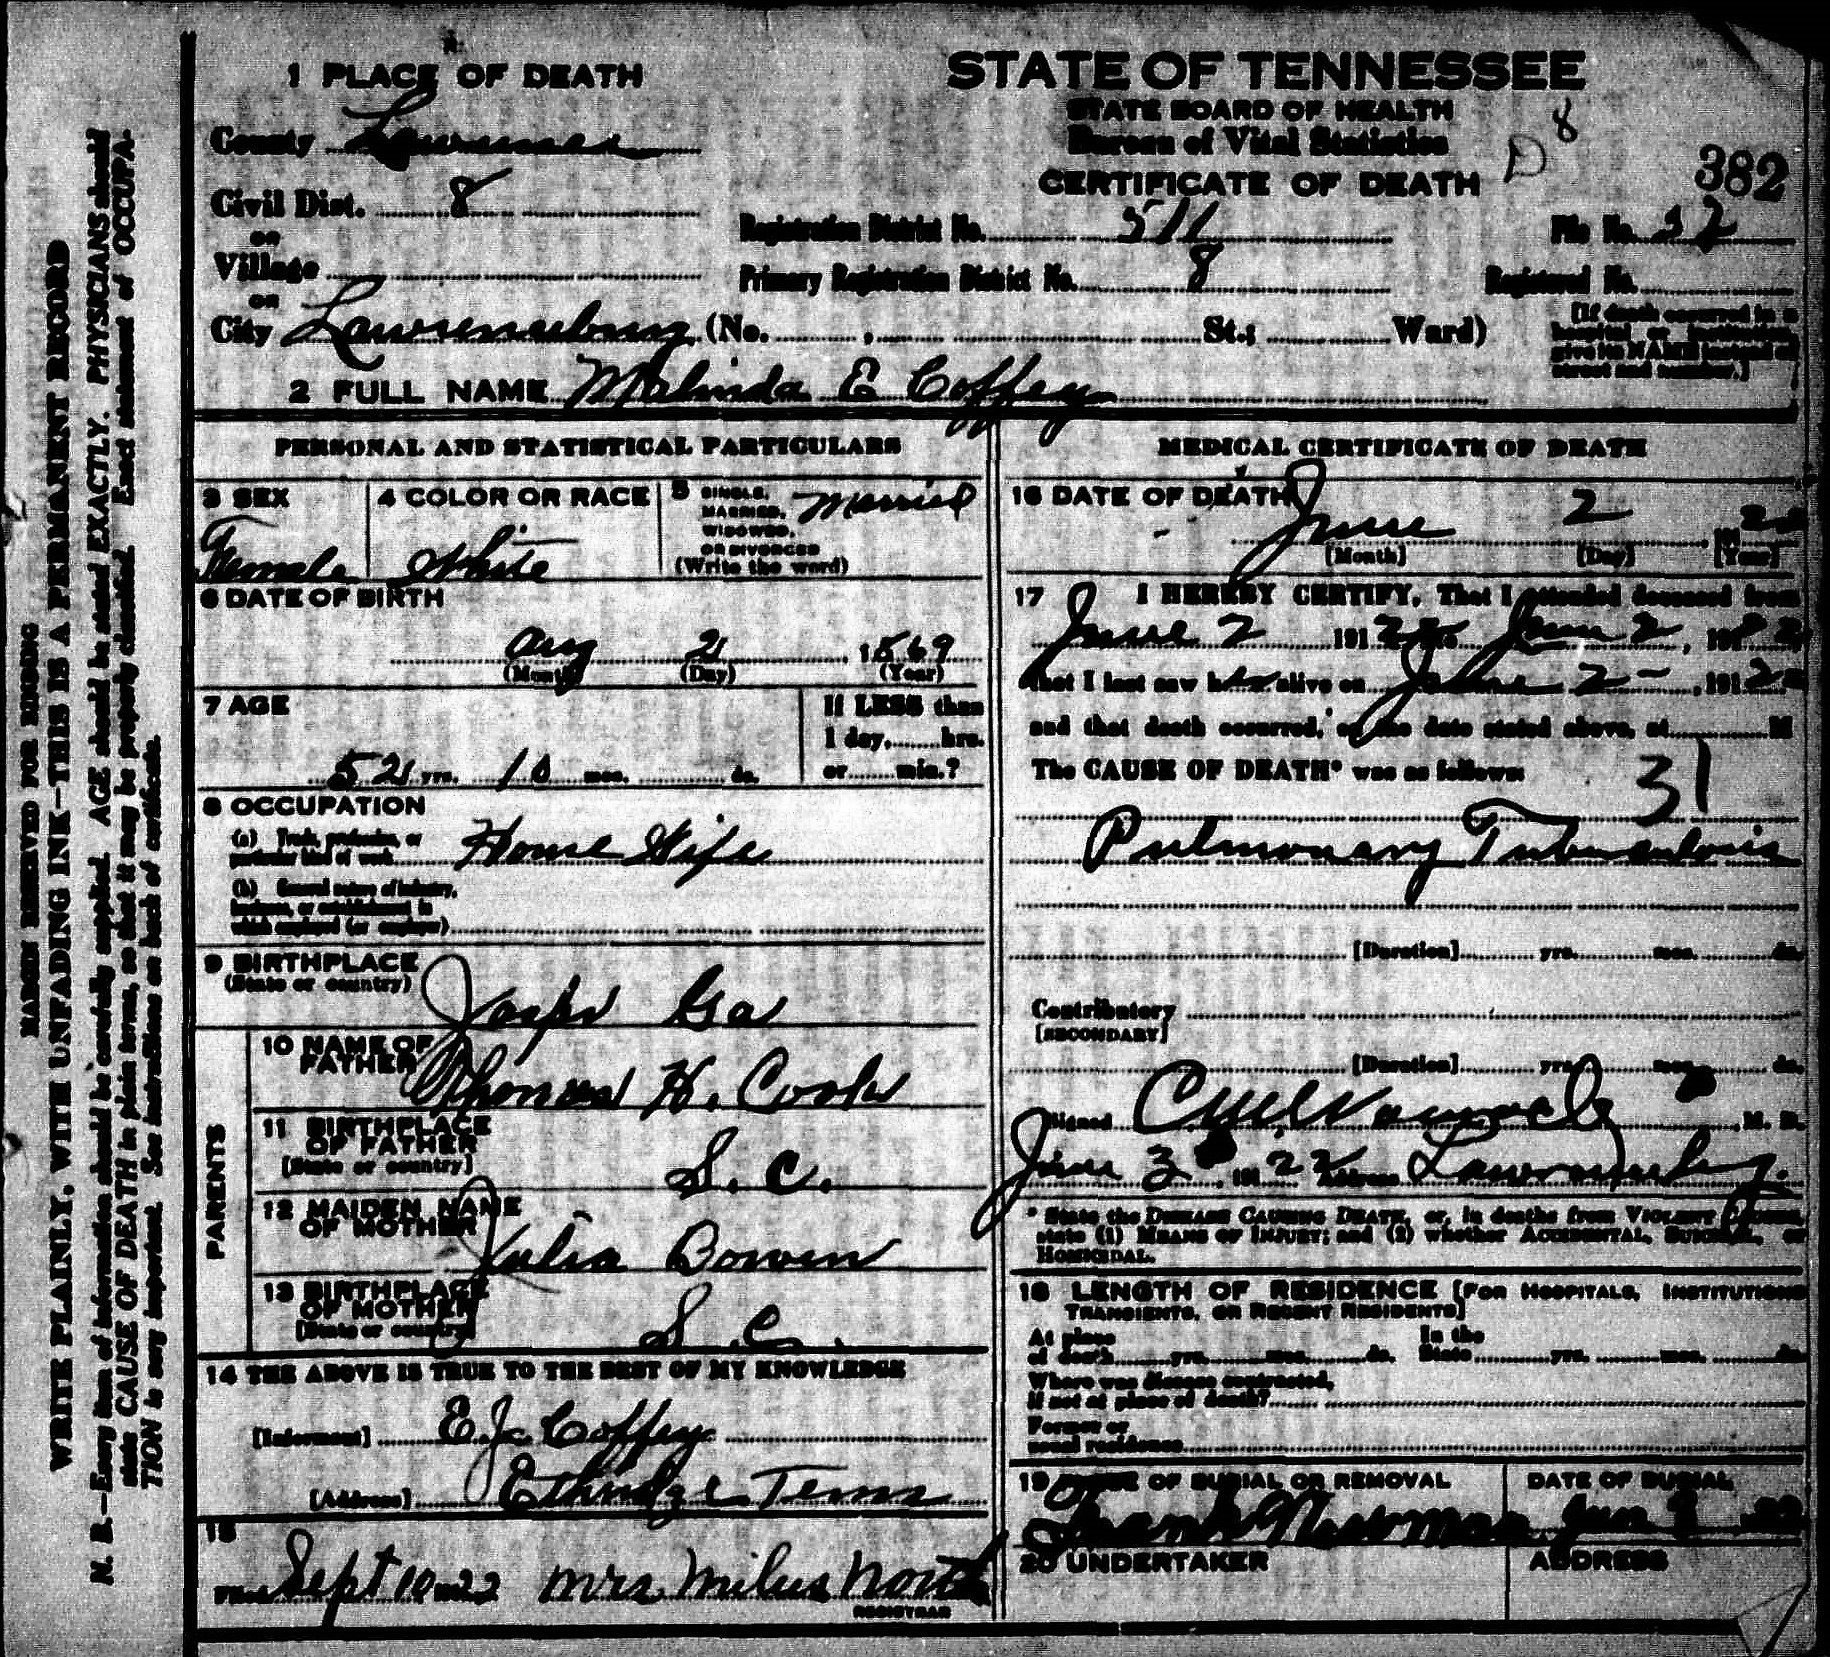 1 PLACE OF DEATH
County Lawrence
Civil Dist. 8
or
Village
or
City Lawrenceburg (No. , St.; Ward)
STATE OF TENNESSEE
STATE BOARD OF HEALTH
Bureau of Vital Statistics
CERTIFICATE OF DEATH
D 8
382
Registration District No. 511
File No. 32
Primary Registration District No. 8
Registered No.
[If death occurred in a
hospital or institution,
give its NAME instead of
street and number.]
2 FULL NAME Malinda E Coffey
PERSONAL AND STATISTICAL PARTICULARS
3 SEX
Female
4 COLOR OR RACE
White
5 SINGLE,
MARRIED,
WIDOWED,
OR DIVORCED
(Write the word)
Married
6 DATE OF BIRTH
Aug 2 1869
(Month) (Day) (Year)
7 AGE
52 yrs. 10 mos. ds.
If LESS than
1 day, hrs.
or min.?
8 OCCUPATION
(a) Trade, profession, or
particular kind of work House Wife
(b) General nature of industry,
business, or establishment in
which employed (or employer)
9 BIRTHPLACE
(State or country)
Ga
PARENTS
10 NAME OF
FATHER
Thomas H. Cook
11 BIRTHPLACE
OF FATHER
[State or country]
S. C.
12 MAIDEN NAME
OF MOTHER
Julia Bowen
13 BIRTHPLACE
OF MOTHER
[State or country]
S. C.
14 THE ABOVE IS TRUE TO THE BEST OF MY KNOWLEDGE
[Informant] E. J. Coffey
[Address] Ethridge Tenn
15
Filed Sept 10 1922 Mrs Milus North
REGISTRAR
MEDICAL CERTIFICATE OF DEATH
16 DATE OF DEATH
June 2 , 1922
[Month] [Day] [Year]
17 I HEREBY CERTIFY, That I attended deceased from
June 2 1912 22 to June 2 , 1922
that I last saw her alive on June 2 - , 1912 22
and that death occurred, on the date stated above, at M
The CAUSE OF DEATH* was as follows:
31
Pulmonary Tuberculosis
[Duration] yrs. mos. ds.
Contributory
[SECONDARY]
[Duration] yrs. mos. ds.
Signed M. D.
June 3 , 191 22 Address Lawrenceburg.
* State the DISEASE CAUSING DEATH, or, in deaths from VIOLENT CAUSES,
state (1) MEANS OF INJURY; and (2) whether ACCIDENTAL, SUICIDAL, or
HOMICIDAL.
18 LENGTH OF RESIDENCE [FOR HOSPITALS, INSTITUTIONS
TRANSIENTS, OR RECENT RESIDENTS]
At place In the
of death yrs. mos. ds. State yrs. mos. ds.
Where was disease contracted,
if not at place of death?
Former or
usual residence
19 PLACE OF BURIAL OR REMOVAL
DATE OF BURIAL
Frank Newman Jun 3 22
20 UNDERTAKER
ADDRESS
MARGIN RESERVED FOR BINDING
WRITE PLAINLY, WITH UNFADING INK—THIS IS A PERMANENT RECORD
N. B.—Every item of information should be carefully supplied. AGE should be stated EXACTLY. PHYSICIANS should
state CAUSE OF DEATH in plain terms, so that it may be properly classified. Exact statement of OCCUPA-
TION is very important. See instructions on back of certificate.